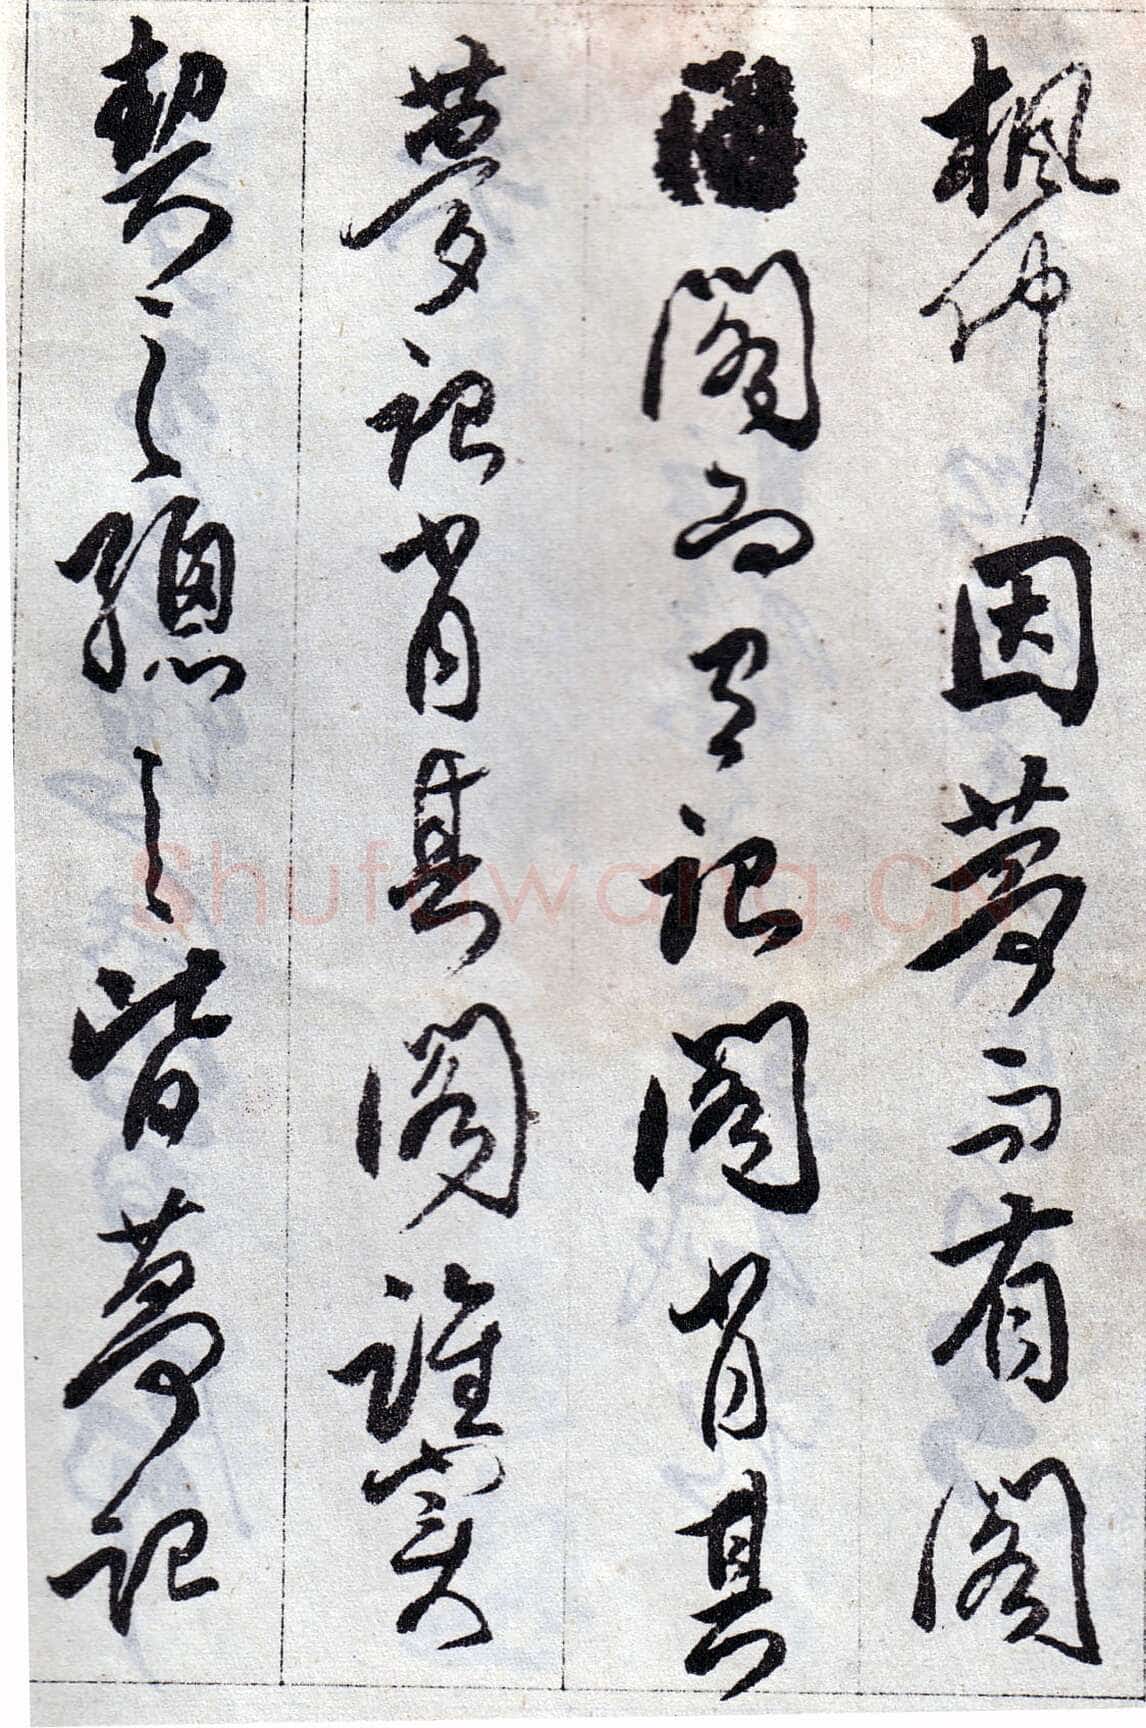 楓仲因夢而有閣
閣而有記閣肖其
夢記肖其閣誰實
契之摠之皆夢記
Shufawang.CN